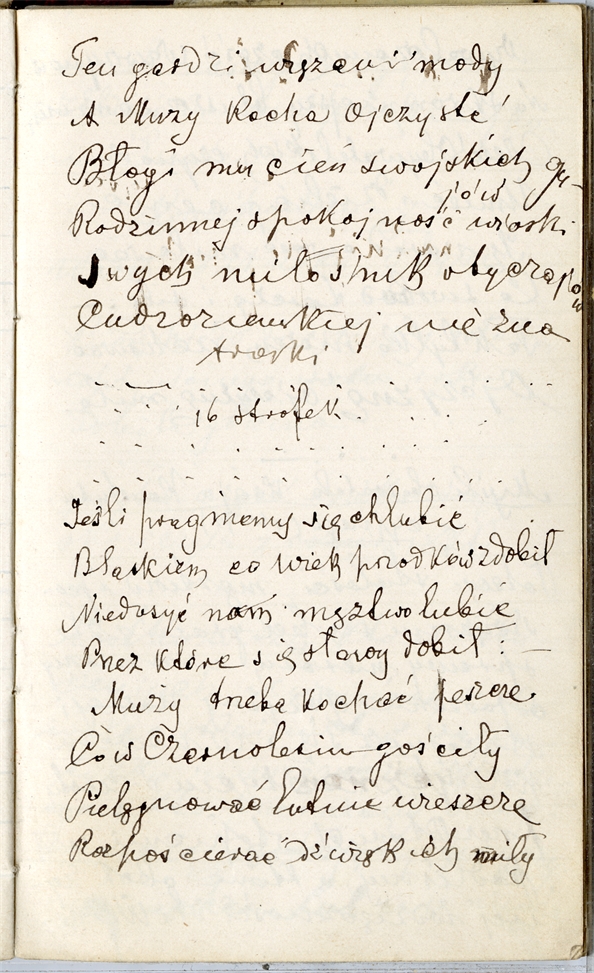 Ten gardzi wrzawi mody
A Muzy Kocha Ojczyste
Błogi mu cień swojskich ga-
jów
Rodzinnej spokojność wioski
Swych miłośnik obyczajów
Cudzoziemskiej nie zna
troski
16 strofek
Jeśli pragniemy się chlubić
Blaskiem co wiek przodków zdobił
Niedosyć nam męztwo lubić
Przez które się sławy dobił: —
Muzy trzeba kochać jeszcze
Co w Czarnolesiu gościły
Pielęgnować lutnie wieszcze
Rozpościerać dźwięk ich miły